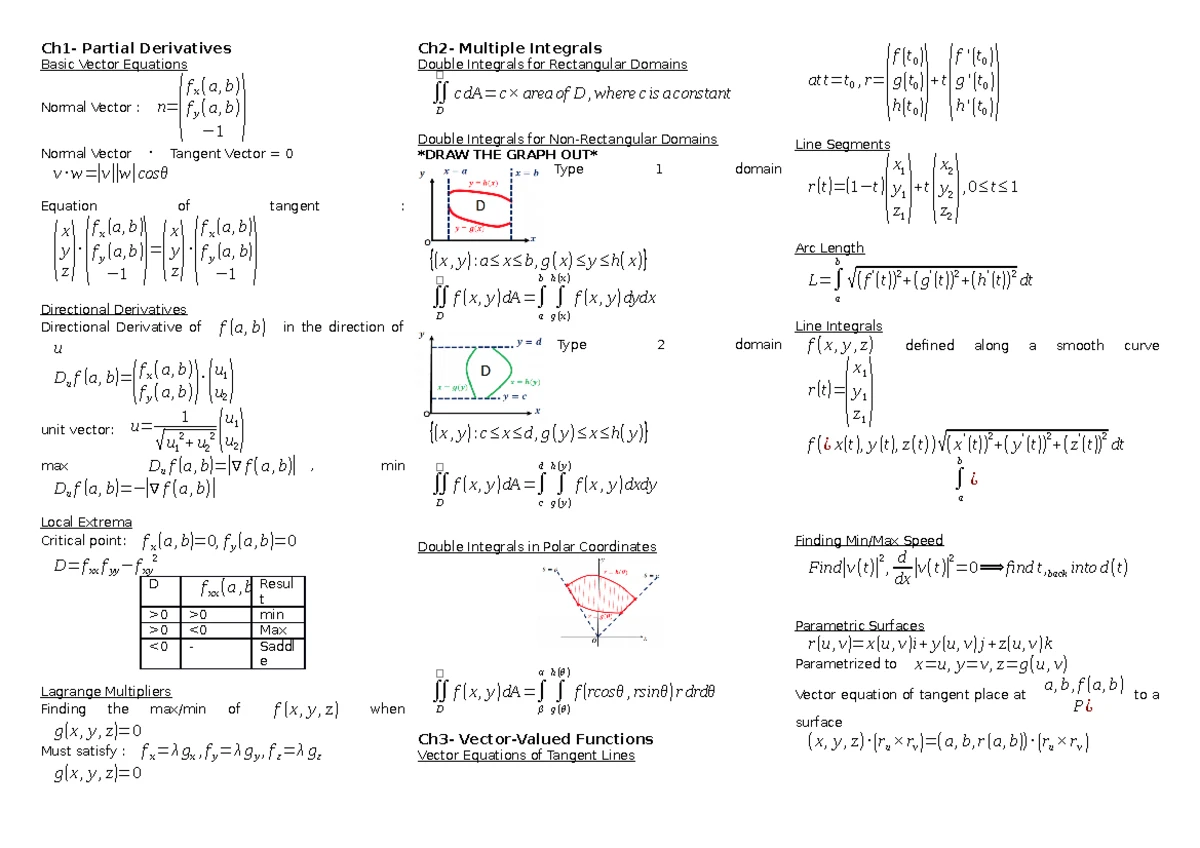 Ch1- Partial Derivatives
Basic Vector Equations
Normal Vector : n=(f_x(a,b) f_y(a,b) −1)
Normal Vector · Tangent Vector = 0
v·w=|v||w|cosθ
Equation of tangent :
(x y z)·(f_x(a,b) f_y(a,b) −1)=(x y z)·(f_x(a,b) f_y(a,b) −1)
Directional Derivatives
Directional Derivative of f(a,b) in the direction of
u
D_u f(a,b)=(f_x(a,b) f_y(a,b))·(u_1 u_2)
unit vector: u=1/√(u_1²+u_2²) (u_1 u_2)
max D_u f(a,b)=|∇f(a,b)| , min
D_u f(a,b)=−|∇f(a,b)|
Local Extrema
Critical point: f_x(a,b)=0, f_y(a,b)=0
D=f_xx f_yy−f_xy²
D f_xx(a,b Resul
t
>0 >0 min
>0 <0 Max
<0 - Saddl
e
Lagrange Multipliers
Finding the max/min of f(x,y,z) when
g(x,y,z)=0
Must satisfy : f_x=λg_x, f_y=λg_y, f_z=λg_z
g(x,y,z)=0
Ch2- Multiple Integrals
Double Integrals for Rectangular Domains
∬_D^□ c dA=c×area of D, where c is a constant
Double Integrals for Non-Rectangular Domains
*DRAW THE GRAPH OUT*
Type 1 domain
y x = a x = b
y = h(x)
D
y = g(x)
O x
{(x,y):a≤x≤b, g(x)≤y≤h(x)}
∬_D^□ f(x,y)dA=∫_a^b ∫_g(x)^h(x) f(x,y)dydx
Type 2 domain
y y = d
D
x = g(y) x = h(y)
y = c
O x
{(x,y):c≤x≤d, g(y)≤x≤h(y)}
∬_D^□ f(x,y)dA=∫_c^d ∫_g(y)^h(y) f(x,y)dxdy
Double Integrals in Polar Coordinates
r = h(θ)
r = g(θ)
O
∬_D^□ f(x,y)dA=∫_β^α ∫_g(θ)^h(θ) f(rcosθ, rsinθ)r drdθ
Ch3- Vector-Valued Functions
Vector Equations of Tangent Lines
at t=t_0, r=(f(t_0) g(t_0) h(t_0))+t(f'(t_0) g'(t_0) h'(t_0))
Line Segments
r(t)=(1−t)(x_1 y_1 z_1)+t(x_2 y_2 z_2), 0≤t≤1
Arc Length
L=∫_a^b √((f'(t))²+(g'(t))²+(h'(t))²) dt
Line Integrals
f(x,y,z) defined along a smooth curve
r(t)=(x_1 y_1 z_1)
f(¿x(t), y(t), z(t))√((x'(t))²+(y'(t))²+(z'(t))²) dt
∫_a^b ¿
Finding Min/Max Speed
Find|v(t)|², d/dx |v(t)|²=0⟹find t,_back into d(t)
Parametric Surfaces
r(u,v)=x(u,v)i+y(u,v)j+z(u,v)k
Parametrized to x=u, y=v, z=g(u,v)
Vector equation of tangent place at a,b,f(a,b) P¿ to a
surface
(x,y,z)·(r_u×r_v)=(a,b,r(a,b))·(r_u×r_v)